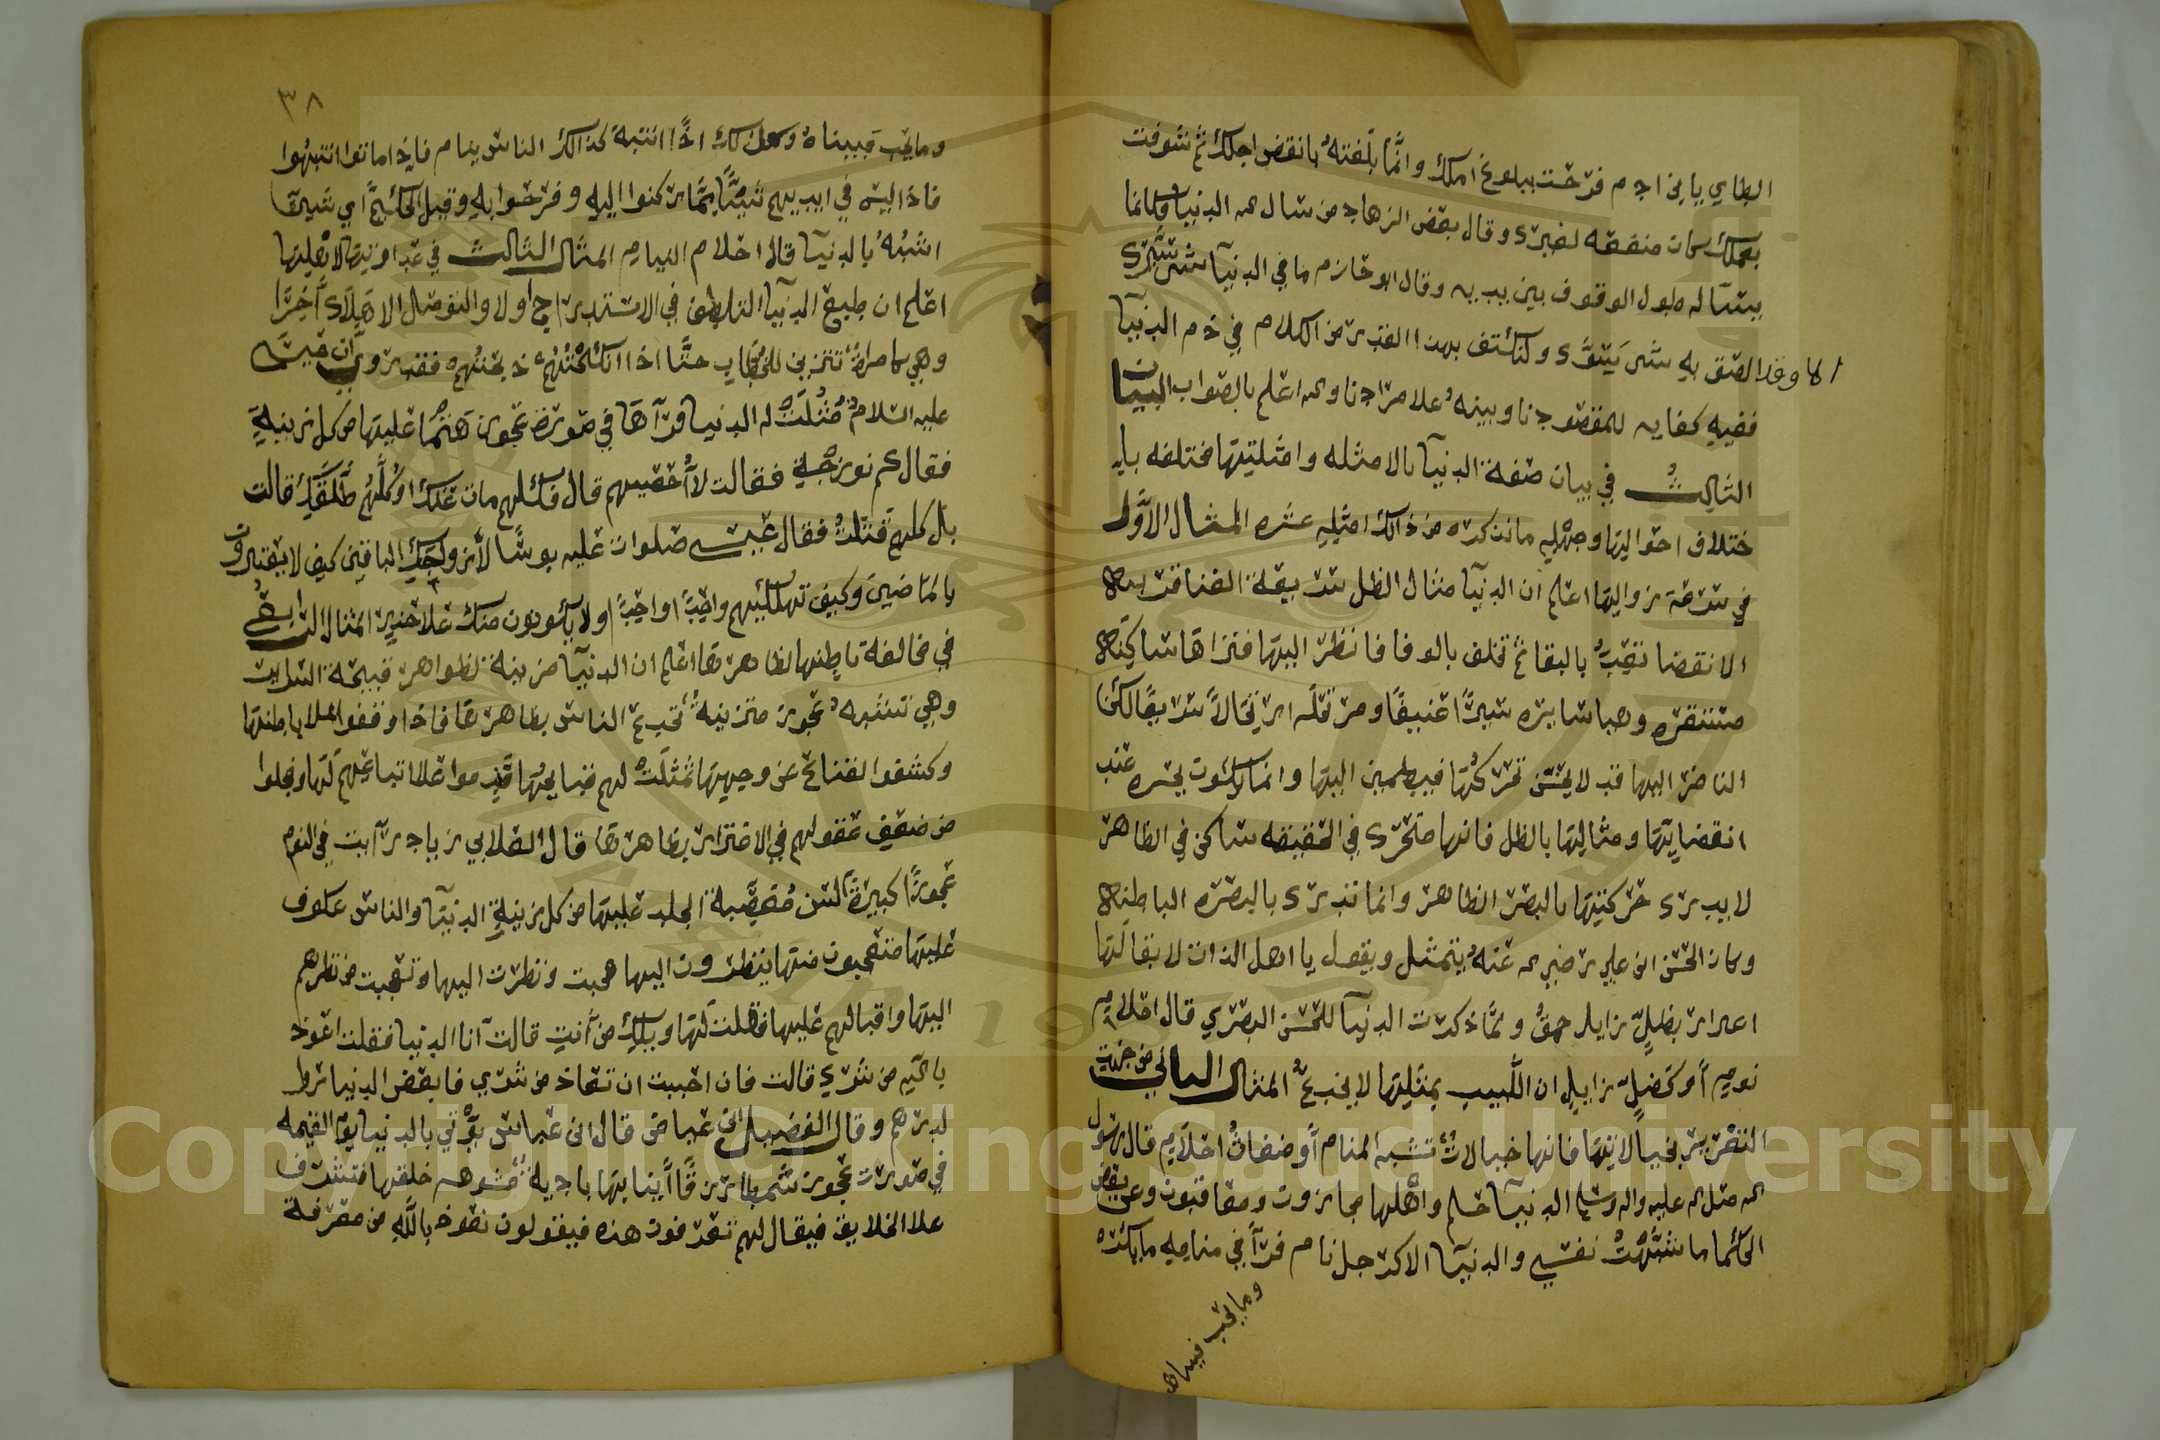 الطاي يا بن ادم فرحت ببلوغ املك وانما بلغته بانقض اجلك ثم سوفت
بعملك كان منفعه لغيرك وقال بعض الزهاد من سال الله الدنيا فكانما
يساله طول الوقوف بين يديه وقال ابو حازم ما في الدنيا شي يسرك
الا وقد الصق به شي يسؤك ولنكتف بهذا القدر من الكلام في ذم الدنيا
ففيه كفايه للمقصودنا وبينه علا مرادنا والله اعلم بالصواب البيان
الثالث في بيان صفة الدنيا بالامثله وامثلتها مختلفه با
ختلاف احوالها وجملة ما نذكره من ذالك امثله عشره المثال الاول
في سرعة زوالها اعلم ان الدنيا مثال الظل سريعة الفنا قريبة
الانقضا تعد بالبقا ثم تخلف بالوفا فانظر اليها فتراها ساكنة
مستقره وهيا سايره سيرا عنيفا ومرتحله ارتحالا سريعا لكن
الناظر اليها قد لا يحس تحركها فيطمين اليها وانما يكون يحس عند
انقضايها ومثالها بالظل فانها متحرك في الحقيقه ساكن في الظاهر
لا يدرى حركتها بالبصر الظاهر وانما تدرى بالبصره الباطنة
وكان الحسن ابن علي رضي الله عنه يتمثل ويقول يا اهل الذات لا بقا لها
اعرار بظل زايل حمق ولما ذكرت الدنيا للحسن البصري قال احلام
نوم او كظل زايل ان اللبيب بمثلها لا يخدع المثال الثاني من حيث
التغرير بخيالاتها فانها خيالات تشبه المنام او ضغاث احلام قال رسول
الله صلى الله عليه واله وسلم الدنيا حلم واهلها مجازون ومعاقبون وعن بعض
الحكما ما شبهت نفسي والدنيا الا كرجل نام فرآ في منامه ما يكره
وما يحب فبينما ه
٣٨
وما يحب فبينا هو كذلك اذا انتبه كذالك الناس نيام فاذا ماتوا انتبهوا
فاذا ليس في ايديهم شيئا مما ركنوا اليه وفرحوا به وقيل لحكيم اي شي
اشبه بالدنيا قال احلام النيام المثال الثالث في عداوتها لاهلها
اعلم ان طبع الدنيا التلطف في الاستدراج اولا والتوصل الا هلاك آخرا
وهي كامراة تتزين للخطاب حتا اذا انكحتهم ذبحتهم فقد روي ان عيسى
عليه السلام مثلت له الدنيا فرآها في صورة عجوز هتما عليها من كل زينة
فقال كم تزوجتي فقالت لا احصيهم قال فكلهم مات عنك او كلهم طلقك قالت
بل كلهم قتلت فقال عيسى صلوات عليه بوسا لازواجك الباقين كيف لا يعتبرون
بالماضين وكيف تهلكيهم واحدا واحدا ولا يكونون منك علا حذر المثال الرابع
في مخالفة باطنها لظاهرها اعلم ان الدنيا مزينة لظواهر قبيحة السراير
وهي تشبه عجوز متزينه تخدع الناس بظاهرها فاذا وقفوا علا باطنها
وكشفوا القناع عن وجهها تمثلت لهم قبايحها فندموا علا اتباعهم لها وخجلوا
من ضعف عقولهم في الاغترار بظاهرها قال العلا بن زياد رآيت في النوم
عجوزا كبيرة السن معصبة الجلد عليها من كل زينة الدنيا والناس عكوف
عليها متعجبون منها ينظرون اليها فجيت ونظرت اليها وتعجبت من نظرهم
اليها واقبالهم عليها فقلت لها ويلك من انت قالت انا الدنيا فقلت اعوذ
بالله من شرك قالت فان احببت ان تعاذ من شري فابغض الدنيا
لدرهم وقال الفضيل ابن عياض قال ابن عباس يؤتي بالدنيا يوم القيمه
في صورت عجوز شمطا زرقا انيابها بادية مشوهه خلقها فتشرف
علا الخلايق فيقال لهم تعرفون هذه فيقولون نعوذ بالله من معرفة
Copyright © King Saud University